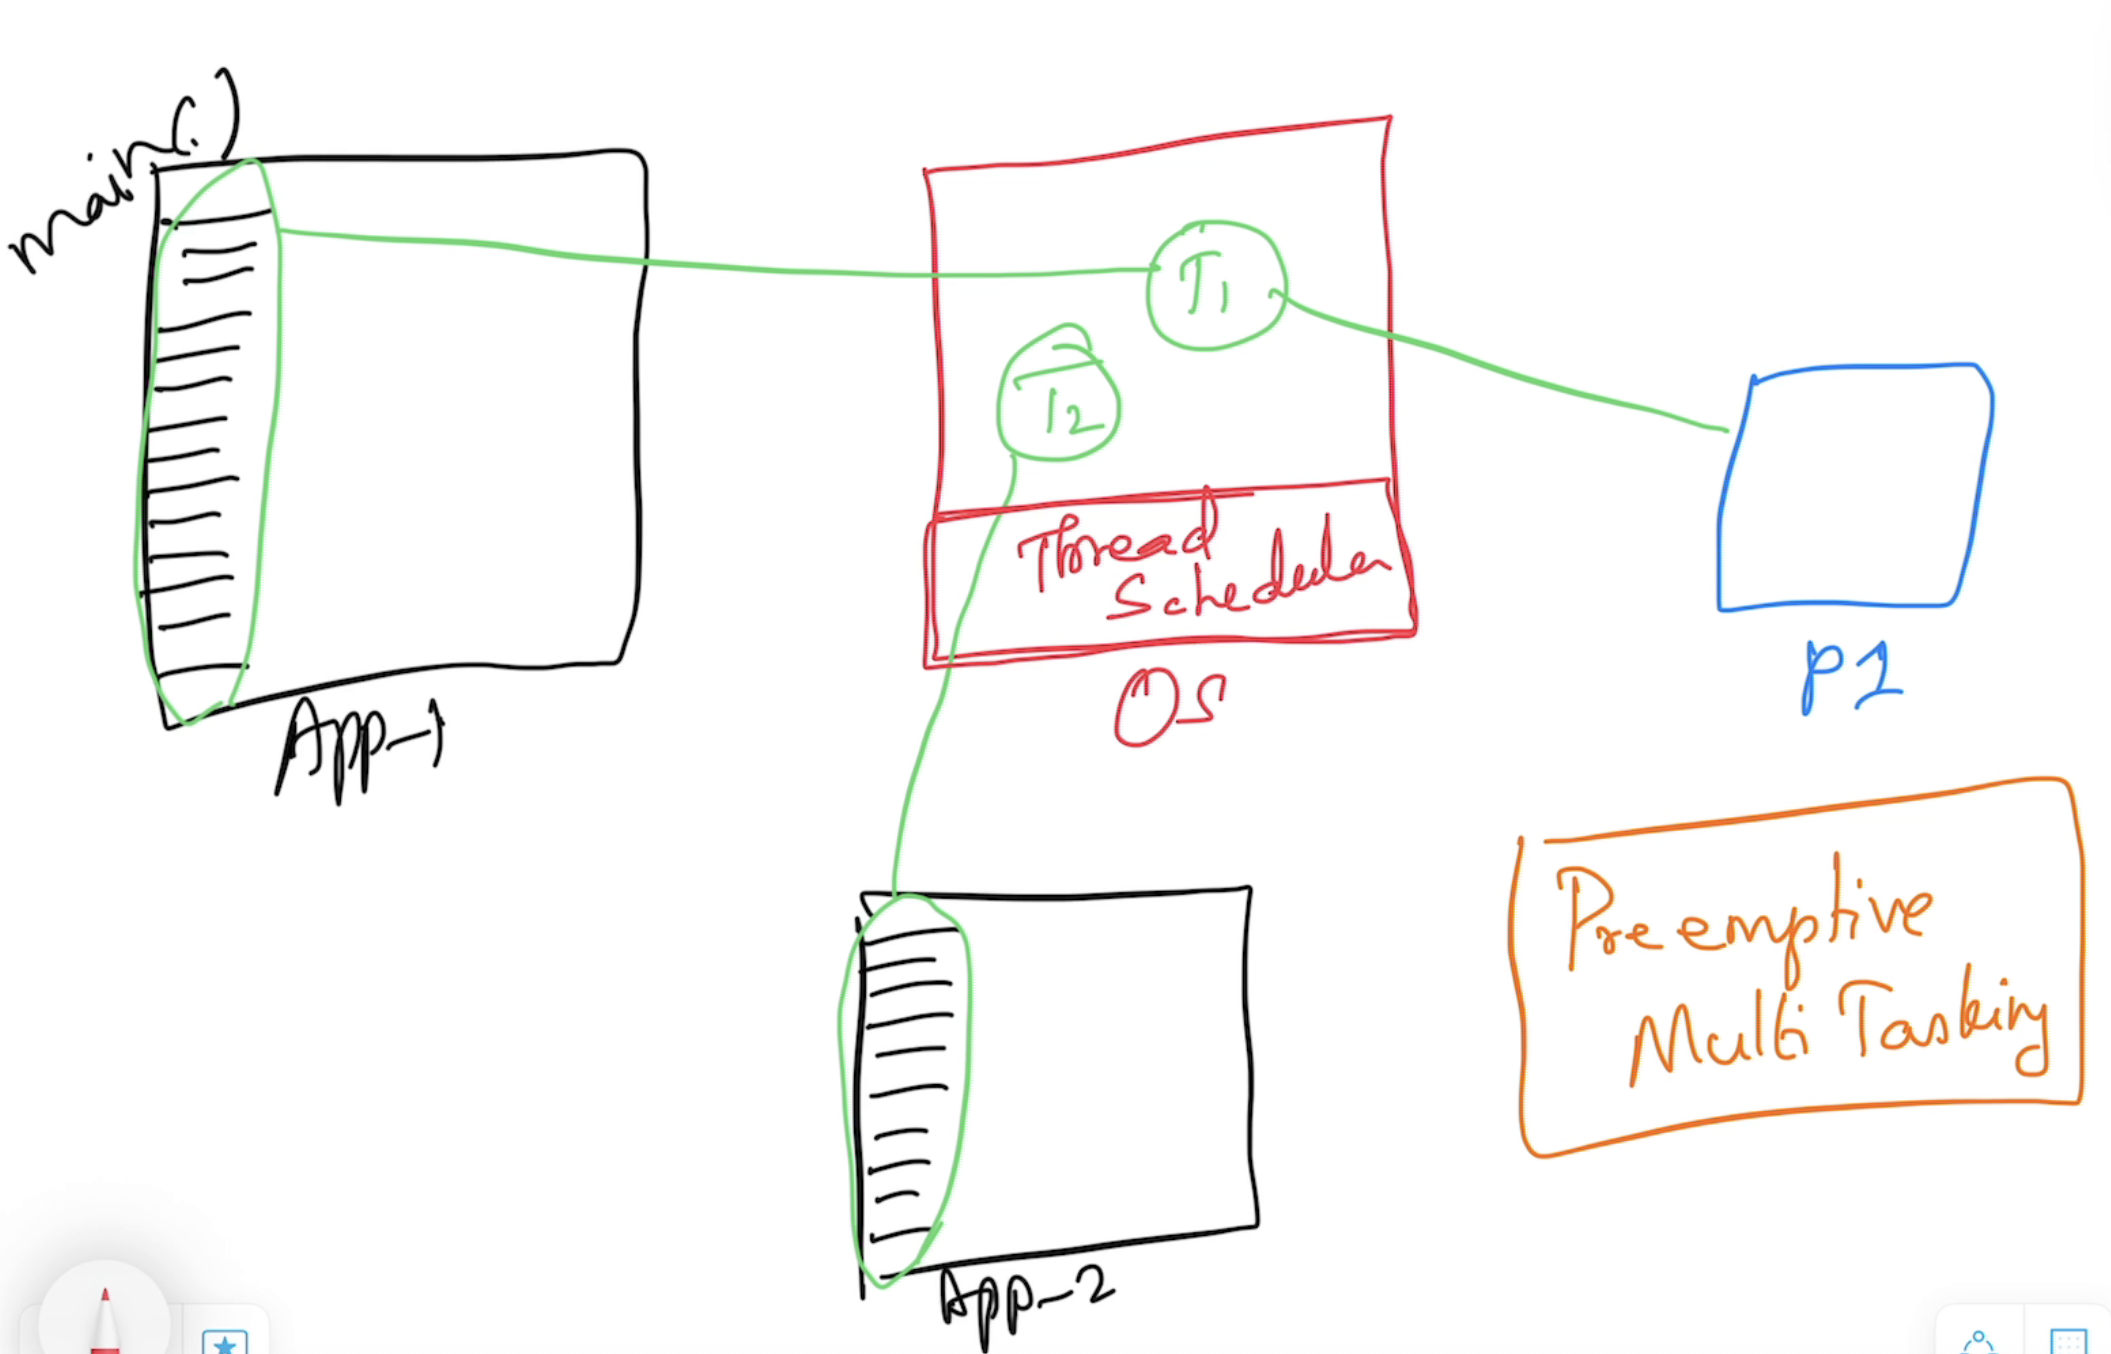 main()
T1
T2
Thread
Scheduler
OS
P1
App-1
Preemptive
Multi Tasking
App-2